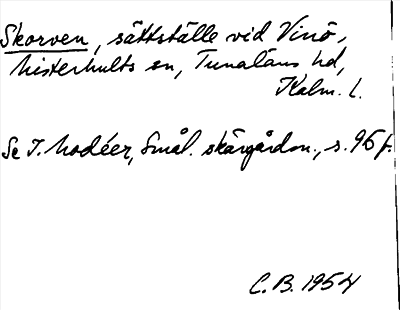 Skorven, sättställe vid Vinö,
Misterhults sn, Tunaläns hd,
Kalm. l.
Se I. Modéer, Smål. skärgårdsn., s. 96 f.
C.B. 1954